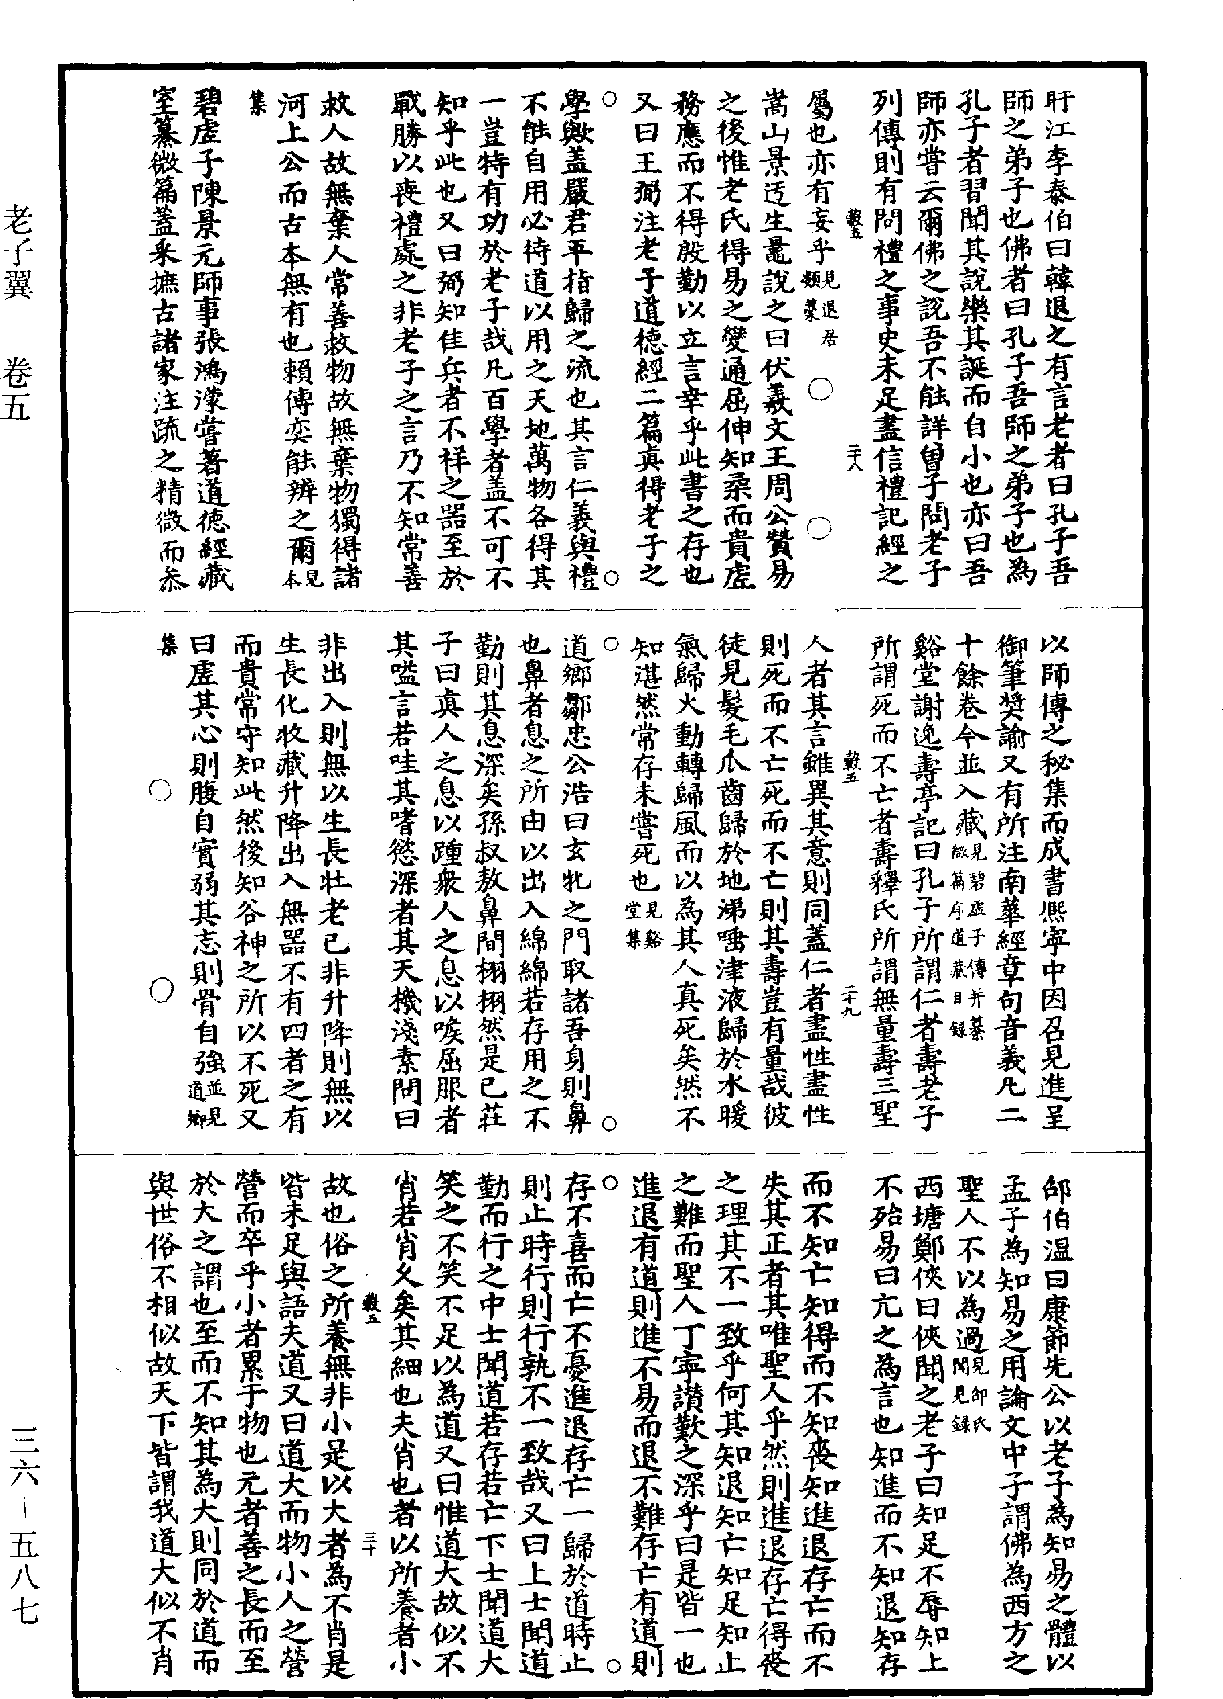 盱江李泰伯曰韓退之有言老者曰孔子吾
師之弟子也佛者曰孔子吾師之弟子也為
孔子者習聞其說樂其誕而自小也亦曰吾
師亦嘗云爾佛之說吾不能詳曾子問老子
列傳則有問禮之事史未足盡信禮記經之
㲄五
二十八
屬也亦有妄乎見退居類藁
嵩山景迂生鼂說之曰伏羲文王周公贊易
之後惟老氏得易之變通屈伸知柔而貴虛
務應而不得殷勤以立言幸乎此書之存也
又曰王弼注老子道德經二篇真得老子之
學歟蓋嚴君平指歸之流也其言仁義與禮
不能自用必待道以用之天地萬物各得其
一豈特有功於老子哉凡百學者蓋不可不
知乎此也又曰弼知佳兵者不祥之器至於
戰勝以喪禮處之非老子之言乃不知常善
救人故無棄人常善救物故無棄物獨得諸
河上公而古本無有也賴傅奕能辨之爾見本
集
碧虛子陳景元師事張鴻濛嘗著道德經藏
室纂微篇蓋采摭古諸家注疏之精微而叅
以師傳之秘集而成書熙寧中因召見進呈
御筆獎諭又有所注南華經章句音義凡二
十餘卷今並入藏見碧虛子傳并纂微篇序道藏目錄
谿堂謝逸壽亭記曰孔子所謂仁者壽老子
所謂死而不亡者壽釋氏所謂無量壽三聖
㲄五
二十九
人者其言雖異其意則同蓋仁者盡性盡性
則死而不亡死而不亡則其壽豈有量哉彼
徒見髮毛爪齒歸於地涕唾津液歸於水暖
氣歸火動轉歸風而以為其人真死矣然不
知湛然常存未嘗死也見谿堂集
道鄉鄒忠公浩曰玄牝之門取諸吾身則鼻
也鼻者息之所由以出入綿綿若存用之不
勤則其息深矣孫叔敖鼻間栩栩然是已莊
子曰真人之息以踵衆人之息以喉屈服者
其嗌言若哇其嗜慾深者其天機淺素問曰
非出入則無以生長壯老已非升降則無以
生長化收藏升降出入無器不有四者之有
而貴常守知此然後知谷神之所以不死又
曰虛其心則腹自實弱其志則骨自強並見道鄉
集
邵伯溫曰康節先公以老子為知易之體以
孟子為知易之用論文中子謂佛為西方之
聖人不以為過見邵氏聞見錄
西塘鄭俠曰俠聞之老子曰知足不辱知止
不殆易曰亢之為言也知進而不知退知存
而不知亡知得而不知喪知進退存亡而不
失其正者其唯聖人乎然則進退存亡得喪
之理其不一致乎何其知退知亡知足知止
之難而聖人丁寧讚歎之深乎曰是皆一也
進退有道則進不易而退不難存亡有道則
存不喜而亡不憂進退存亡一歸於道時止
則止時行則行孰不一致哉又曰上士聞道
勤而行之中士聞道若存若亡下士聞道大
笑之不笑不足以為道又曰惟道大故似不
肖若肖久矣其細也夫肖也者以所養者小
㲄五
三十
故也俗之所養無非小是以大者為不肖是
皆未足與語夫道又曰道大而物小人之營
營而卒乎小者累于物也元者善之長而至
於大之謂也至而不知其為大則同於道而
與世俗不相似故天下皆謂我道大似不肖
老子翼 卷五
三六－五八七